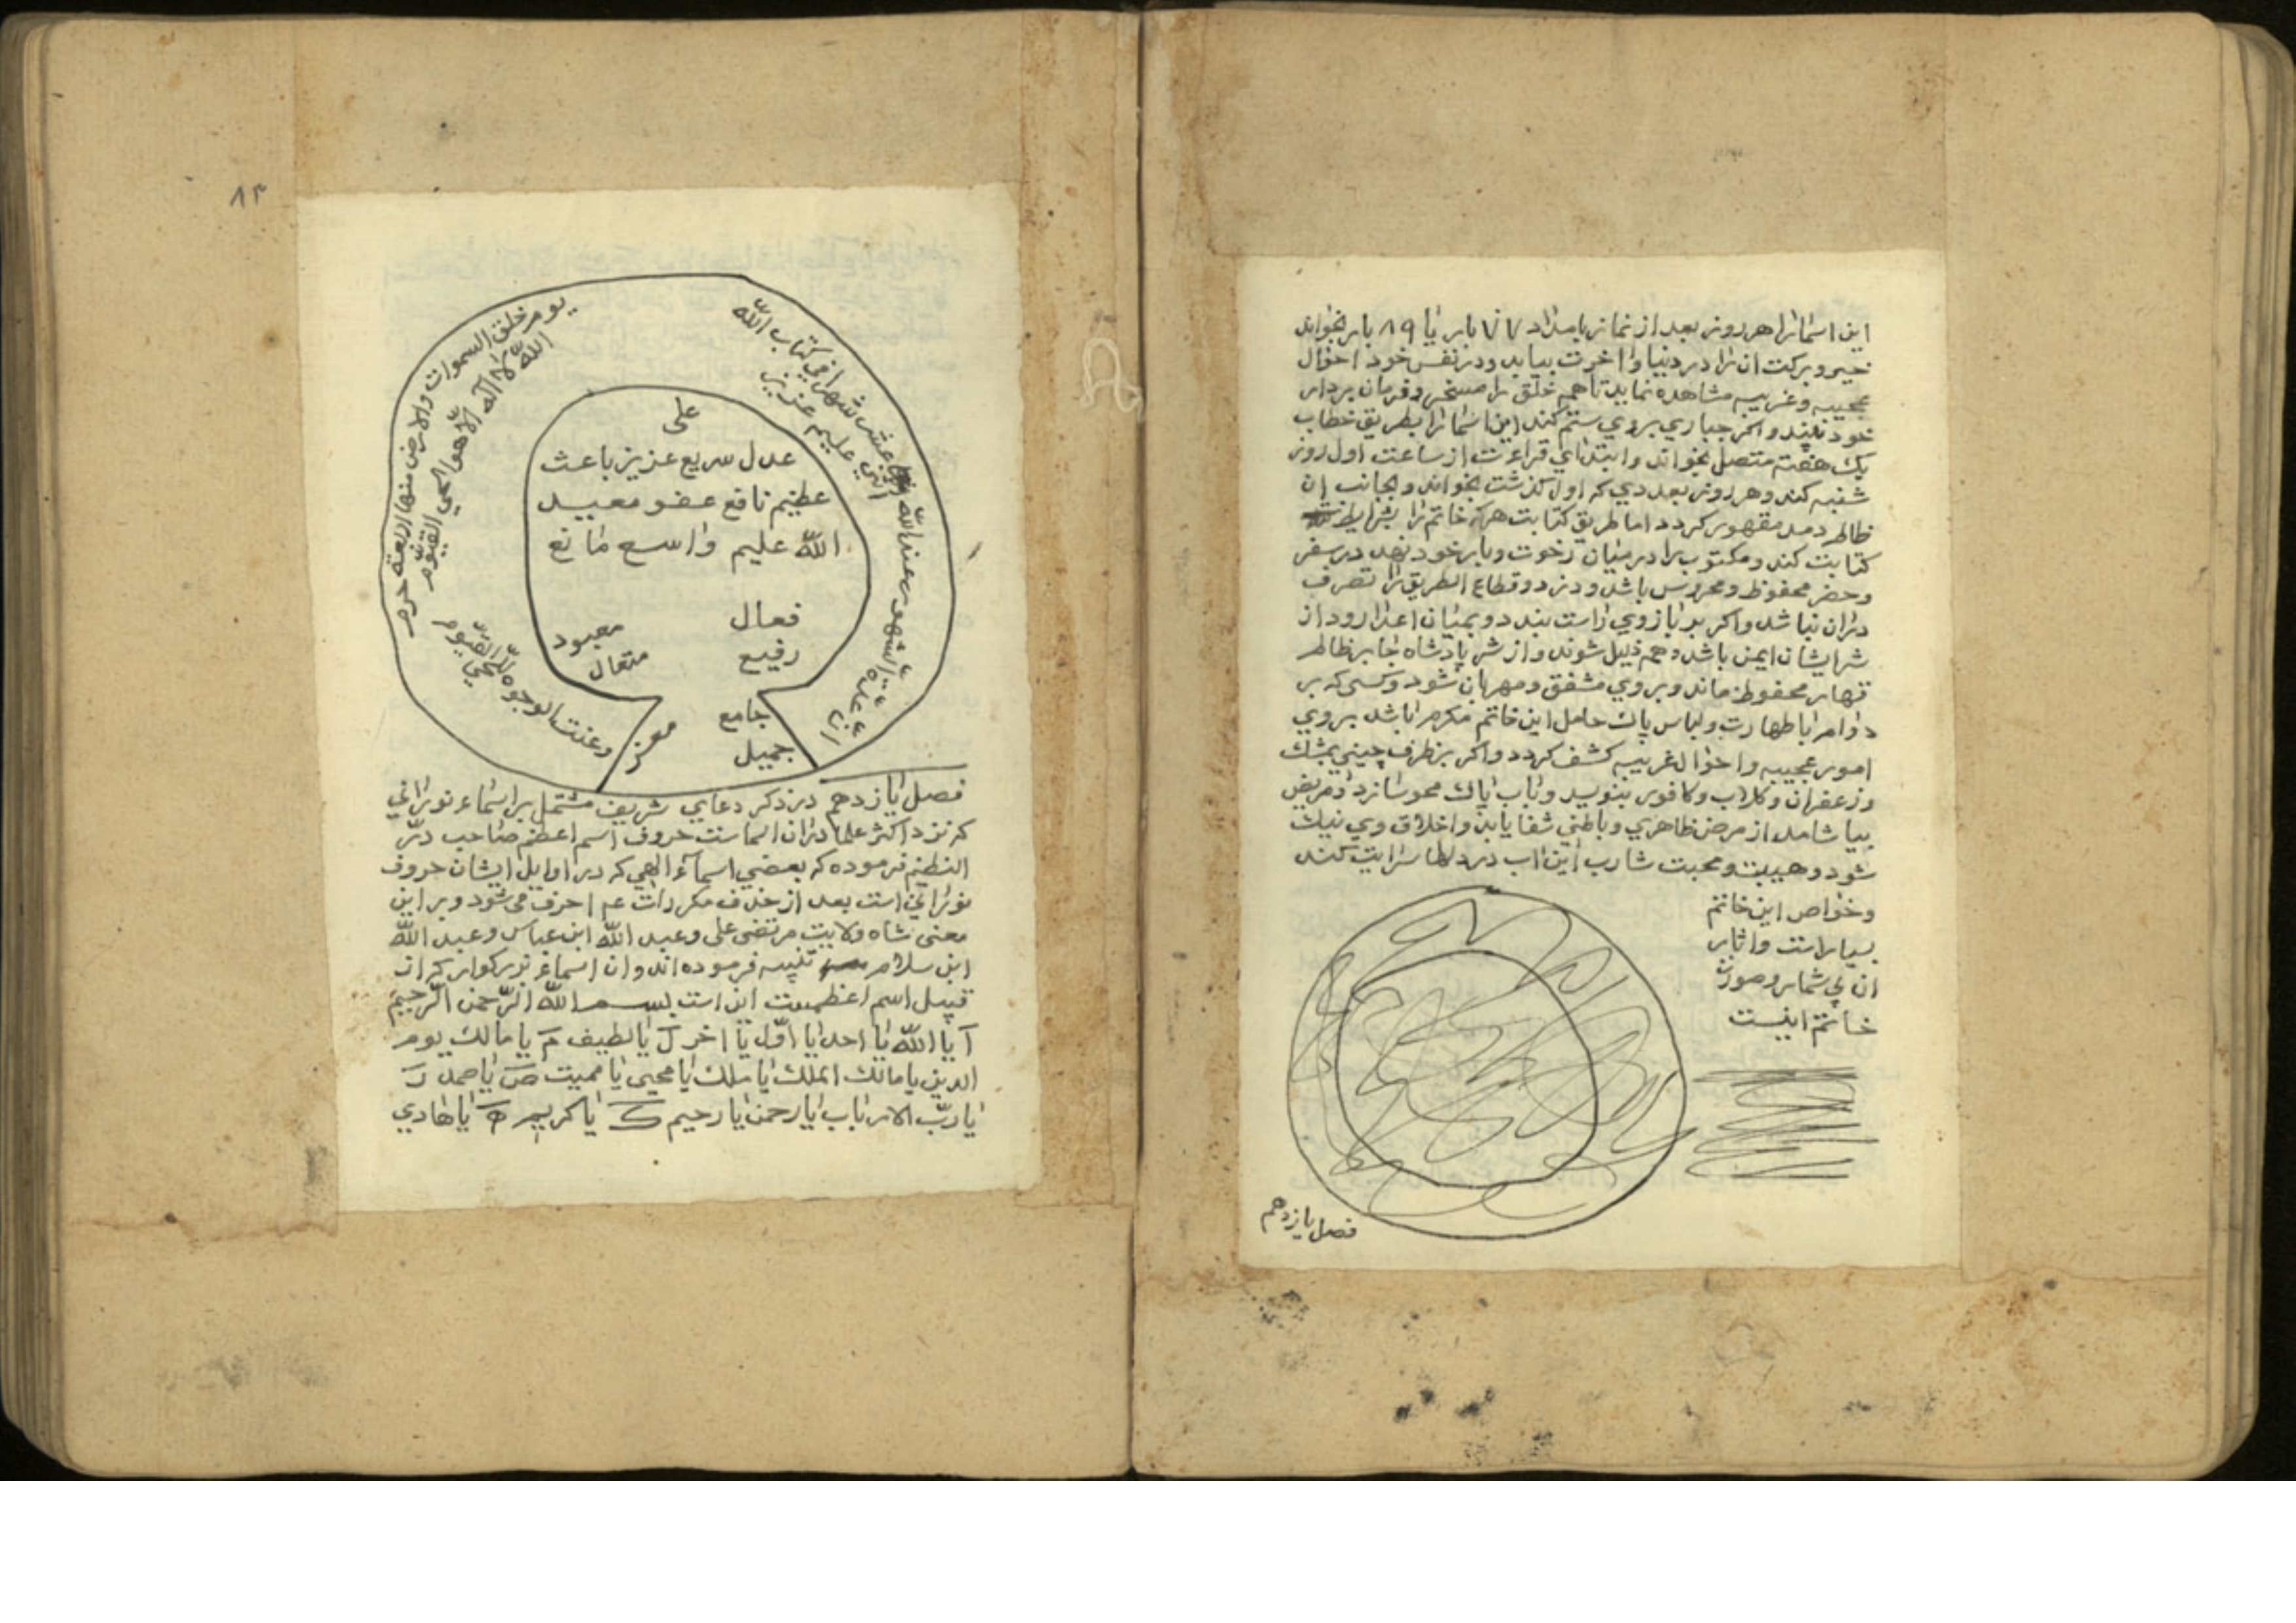 این اسما را هر روز بعد از نماز بامداد ۷۷ بار یا ۸۹ بار بخواند
خیر و برکت ان را در دنیا و اخرت بیابد و در نفس خود احوال
عجیبه و غریبه مشاهده نماید تا همه خلق را مسخر و فرمان بردار
خود بیند و اکر جباری بروی ستم کند این اسما را بطریق خطاب
یک هفته متصل بخواند و ابتدای قراءت از ساعت اول روز
شنبه کند و هر روز بعددی که اول گذشت بخواند و بجانب ان
ظالم دمد مقهور کردد اما طریق کتابت هرکه خاتم را بشرایط
کتابت کند و مکتوب را در میان رخوت و بار خود نهد در سفر
و حضر محفوظ و محروس باشد و دزد و قطاع الطریق را تصرف
دران نباشد و اکر بر بازوی راست بندد و بمیان اعدا رود از
شر ایشان ایمن باشد و همه ذلیل شوند و از شر پادشاه جابر ظالم
قهار محفوظ ماند و بروی مشفق و مهربان شود و کسی که بر
دوام با طهارت و لباس پاک حامل این خاتم مکرم باشد بروی
امور عجیبه و احوال غریبه کشف کردد و اکر بر ظرف چینی بمشک
و زعفران و کلاب و کافور بنویسد و باب پاک محو سازد و مریض
بیاشامد از مرض ظاهری و باطنی شفا یابد و اخلاق وی نیک
شود و هیبت و محبت شارب این اب در دلها سرایت کند
و خواص این خاتم
بسیار است و اثار
ان بی شمار و صورت
خاتم اینست
فصل یازدهم
۸۳
ان عدة الشهور عند الله اثنا عشر شهرا في کتاب الله
یوم خلق السموات والارض منها اربعة حرم
الله لا اله الا هو الحی القیوم
وعنت الوجوه للحی القیوم
علیم عزیز
علی
عدل سریع عزیز باعث
عظیم نافع عفو معید
الله علیم واسع مانع
فعال معبود
رفیع متعال
جامع معز
جمیل
فصل یازدهم در ذکر دعایی شریف مشتمل بر اسماء نورانی
که نزد اکثر علما دران اسماست حروف اسم اعظم صاحب درّ
النظیم فرموده که بعضی اسماء الهی که در اوایل ایشان حروف
نورانی است بعد از حذف مکررات ۱۴ حرف می شود و بر این
معنی شاه ولایت مرتضی علی و عبد الله ابن عباس و عبد الله
ابن سلام تنبیه فرموده اند و ان اسماء بزرکوار که از
قبیل اسم اعظمست این است بسم الله الرّحمن الرّحیم
آ یا الله یا احد یا اوّل یا اخر ل یا لطیف م یا مالک یوم
الدین یا مالک الملک یا ملک یا محیی یا ممیت ص یا صمد ر
یا ربّ الارباب یا رحمن یا رحیم ک یا کریم ه یا هادی